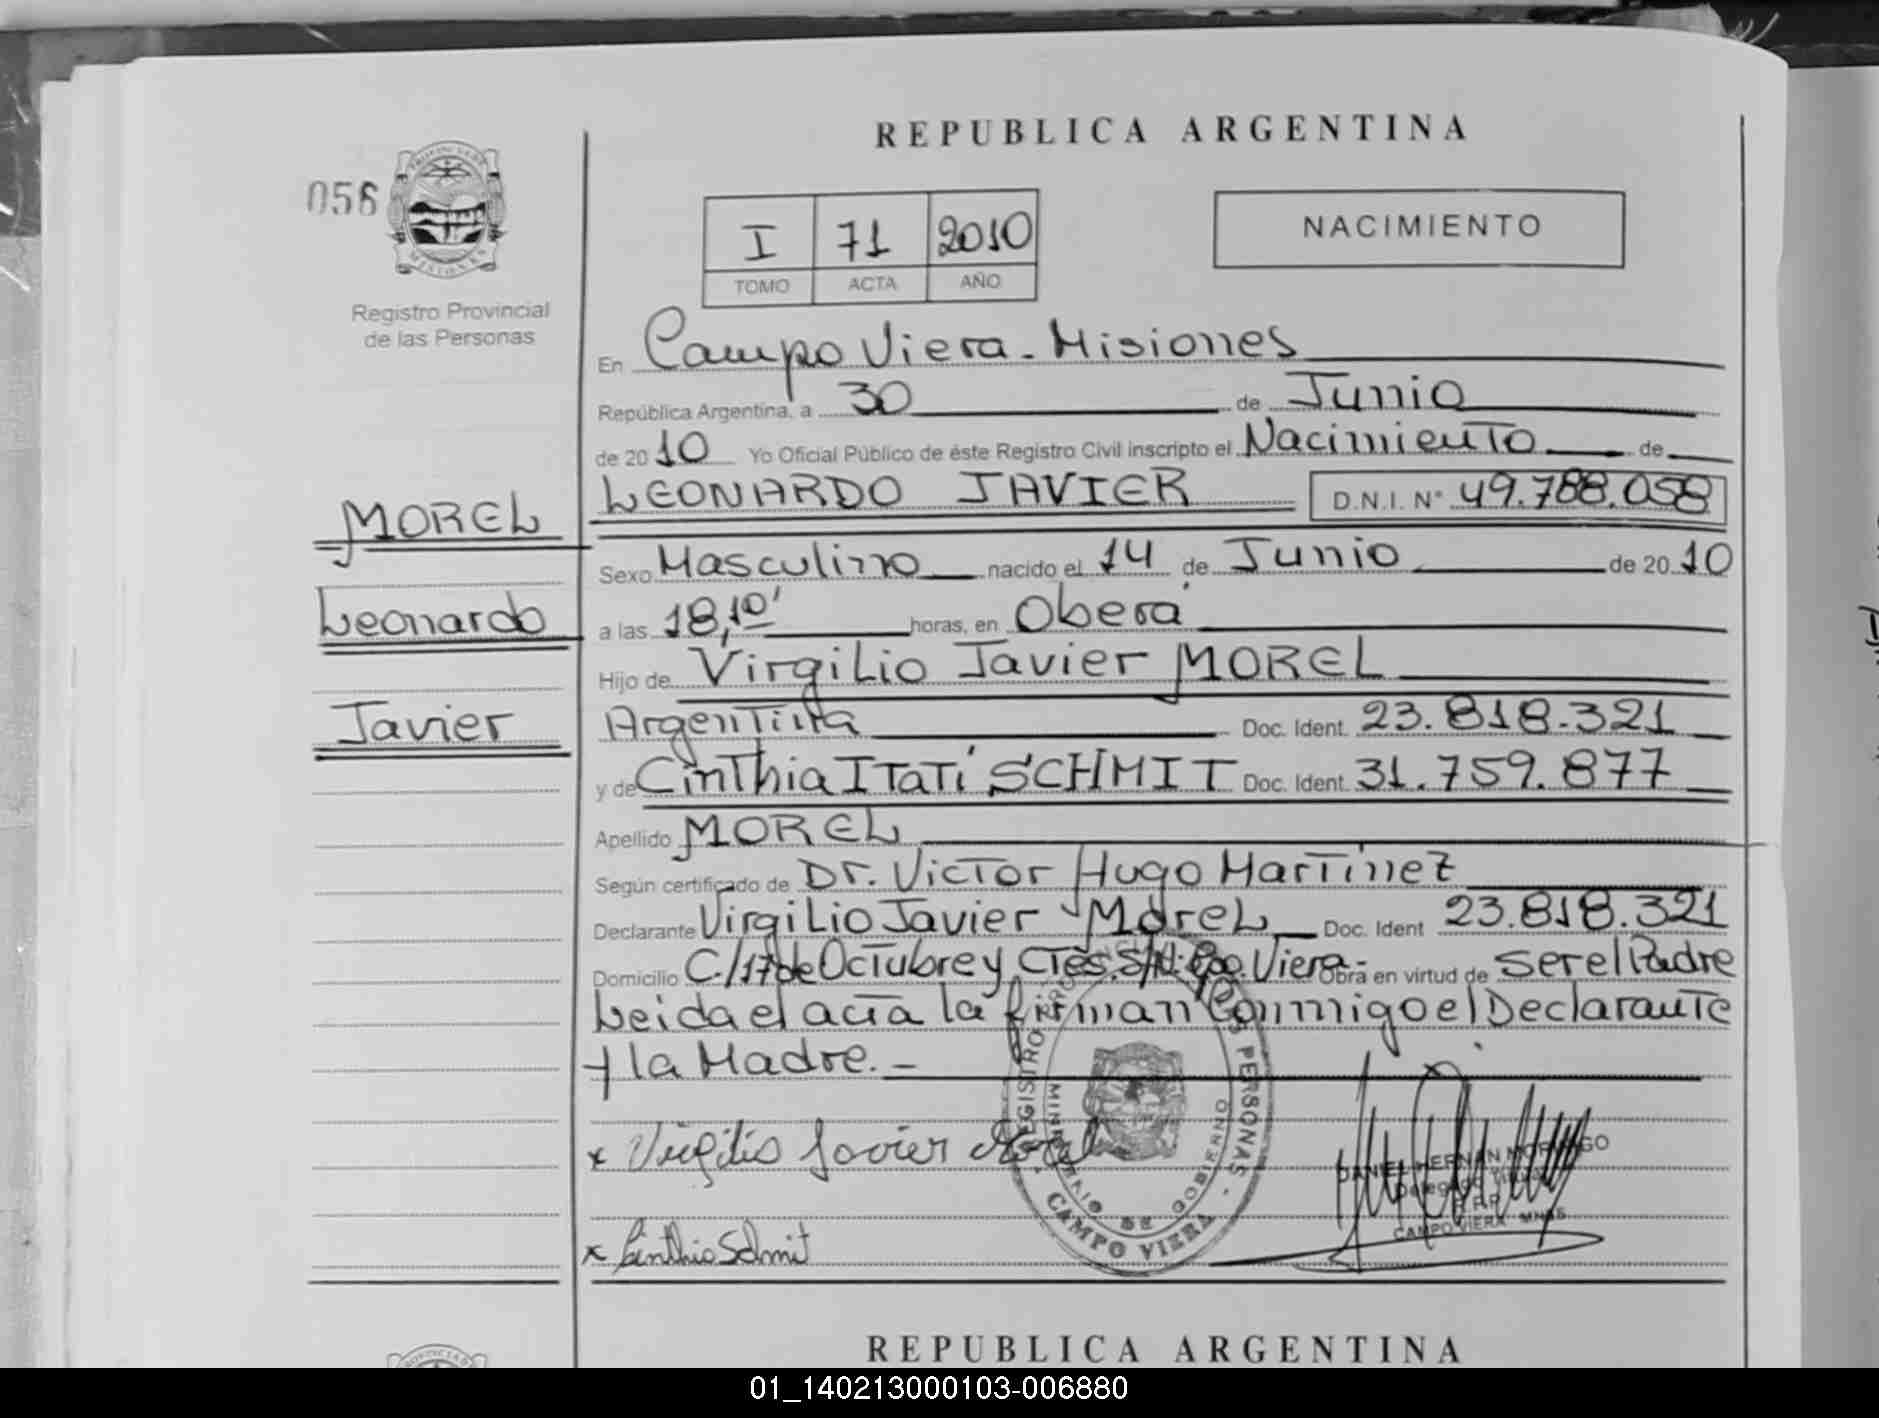 REPUBLICA ARGENTINA
056
PROVINCIA DE
MISIONES
Registro Provincial
de las Personas
I 71 2010
TOMO ACTA AÑO
NACIMIENTO
En Campo Viera - Misiones
República Argentina, a 30 de Junio
de 2010 Yo Oficial Público de éste Registro Civil inscripto el Nacimiento de
LEONARDO JAVIER D.N.I. N° 49.788.058
MOREL
Leonardo
Javier
Sexo Masculino nacido el 14 de Junio de 2010
a las 18,10' horas, en Oberá
Hijo de Virgilio Javier MOREL
Argentina Doc. Ident. 23.818.321
y de Cinthia Itatí SCHMIT Doc. Ident. 31.759.877
Apellido MOREL
Según certificado de Dr. Victor Hugo Martinez
Declarante Virgilio Javier Morel Doc. Ident 23.818.321
Domicilio C./17 de Octubre y Ctes. S/N. Cpo. Viera. Obra en virtud de ser el Padre
Leida el acta la firman Conmigo el Declarante
y la Madre. -
REGISTRO PROVINCIAL DE LAS PERSONAS
MINISTERIO DE GOBIERNO
CAMPO VIERA
x Virgilio Javier Morel
DANIEL HERNAN MORINIGO
Delegado Titular
R.P.P.
CAMPO VIERA - MNES
x Cinthia Schmit
REPUBLICA ARGENTINA
01_140213000103-006880